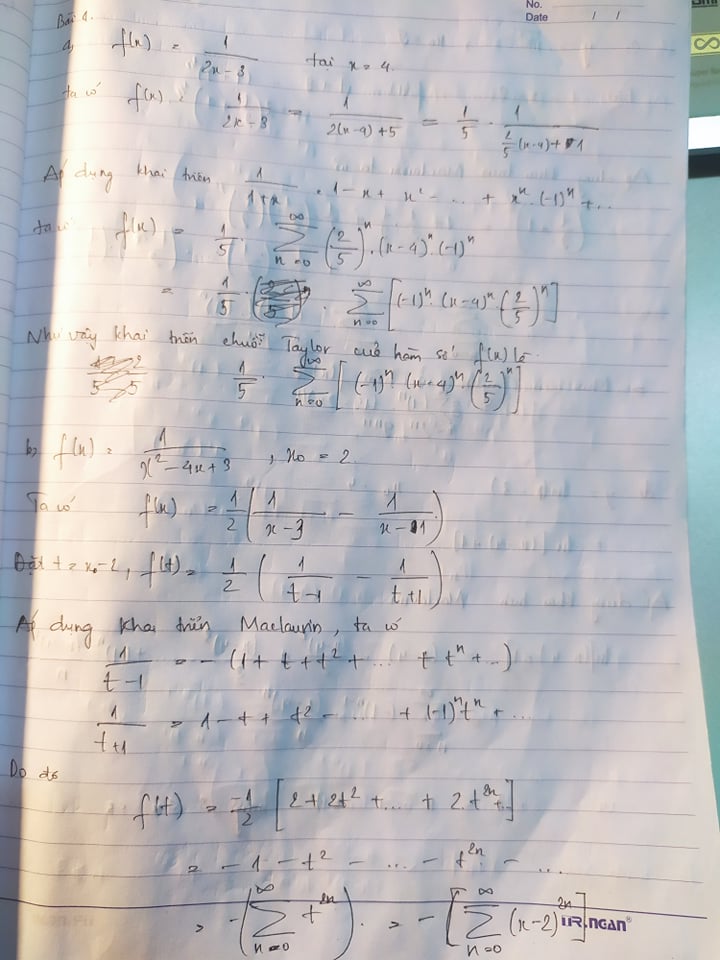 No.
Date / /
Bài 4.
a, f(x) = 1/(2x-3) tại x = 4.
ta có f(x) = 1/(2x-3) = 1/(2(x-4)+5) = 1/5 · 1/(2/5(x-4)+1)
Áp dụng khai triển 1/(1+x) = 1 - x + x² - ... + xⁿ·(-1)ⁿ + ...
ta có f(x) = 1/5 · ∑_{n=0}^{∞} (2/5)ⁿ·(x-4)ⁿ·(-1)ⁿ
= 1/5 · ∑_{n=0}^{∞} [(-1)ⁿ·(x-4)ⁿ·(2/5)ⁿ]
Như vậy khai triển chuỗi Taylor của hàm số f(x) là
1/5 · ∑_{n=0}^{∞} [(-1)ⁿ·(x-4)ⁿ·(2/5)ⁿ]
b, f(x) = 1/(x²-4x+3), x₀ = 2.
Ta có f(x) = 1/2 (1/(x-3) - 1/(x-1))
Đặt t = x-2, f(t) = 1/2 (1/(t-1) - 1/(t+1))
Áp dụng khai triển Maclaurin, ta có
1/(t-1) = -(1 + t + t² + ... + tⁿ + ...)
1/(t+1) = 1 - t + t² - ... + (-1)ⁿtⁿ + ...
Do đó
f(t) = -1/2 [2 + 2t² + ... + 2.t²ⁿ + ..]
= -1 - t² - ... - t²ⁿ - ...
= -(∑_{n=0}^{∞} t²ⁿ). = -[∑_{n=0}^{∞} (x-2)²ⁿ]
TR.NGAN®